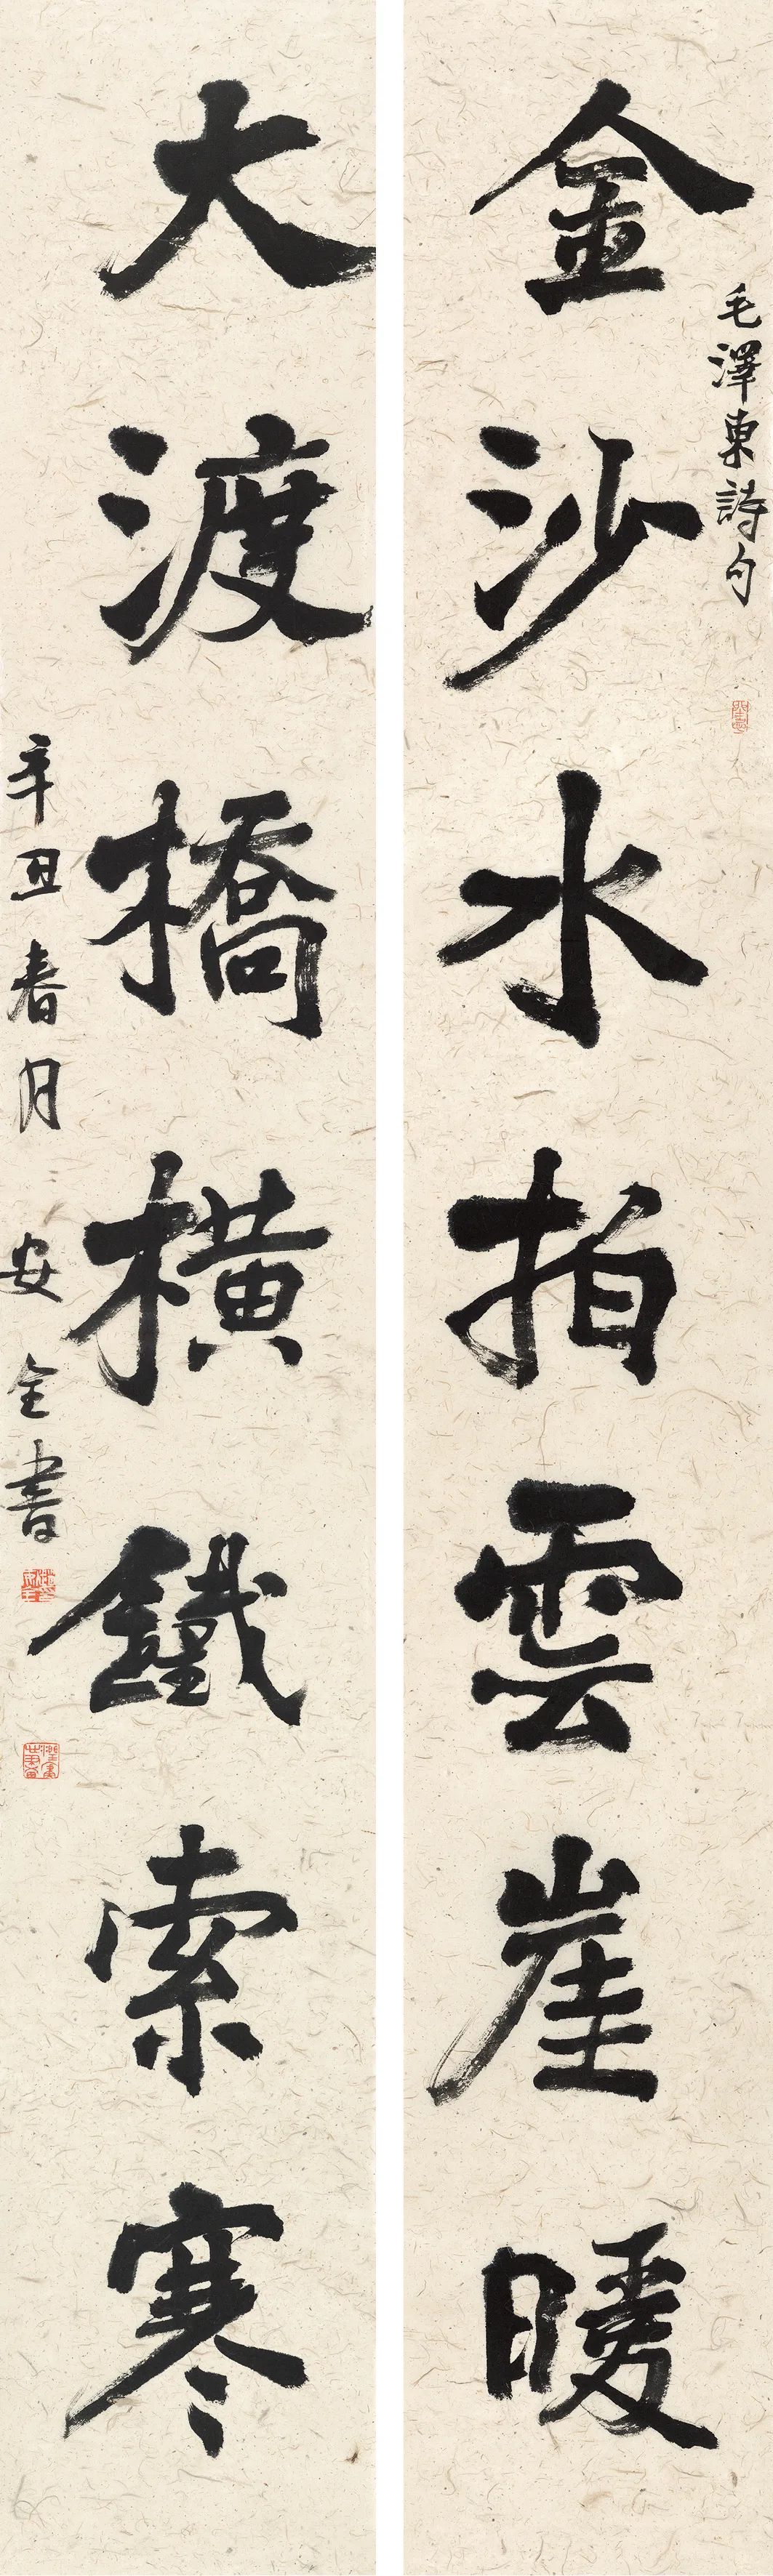 毛澤東詩句
金沙水拍雲崖暖
大渡橋橫鐵索寒
辛丑春月 安全書